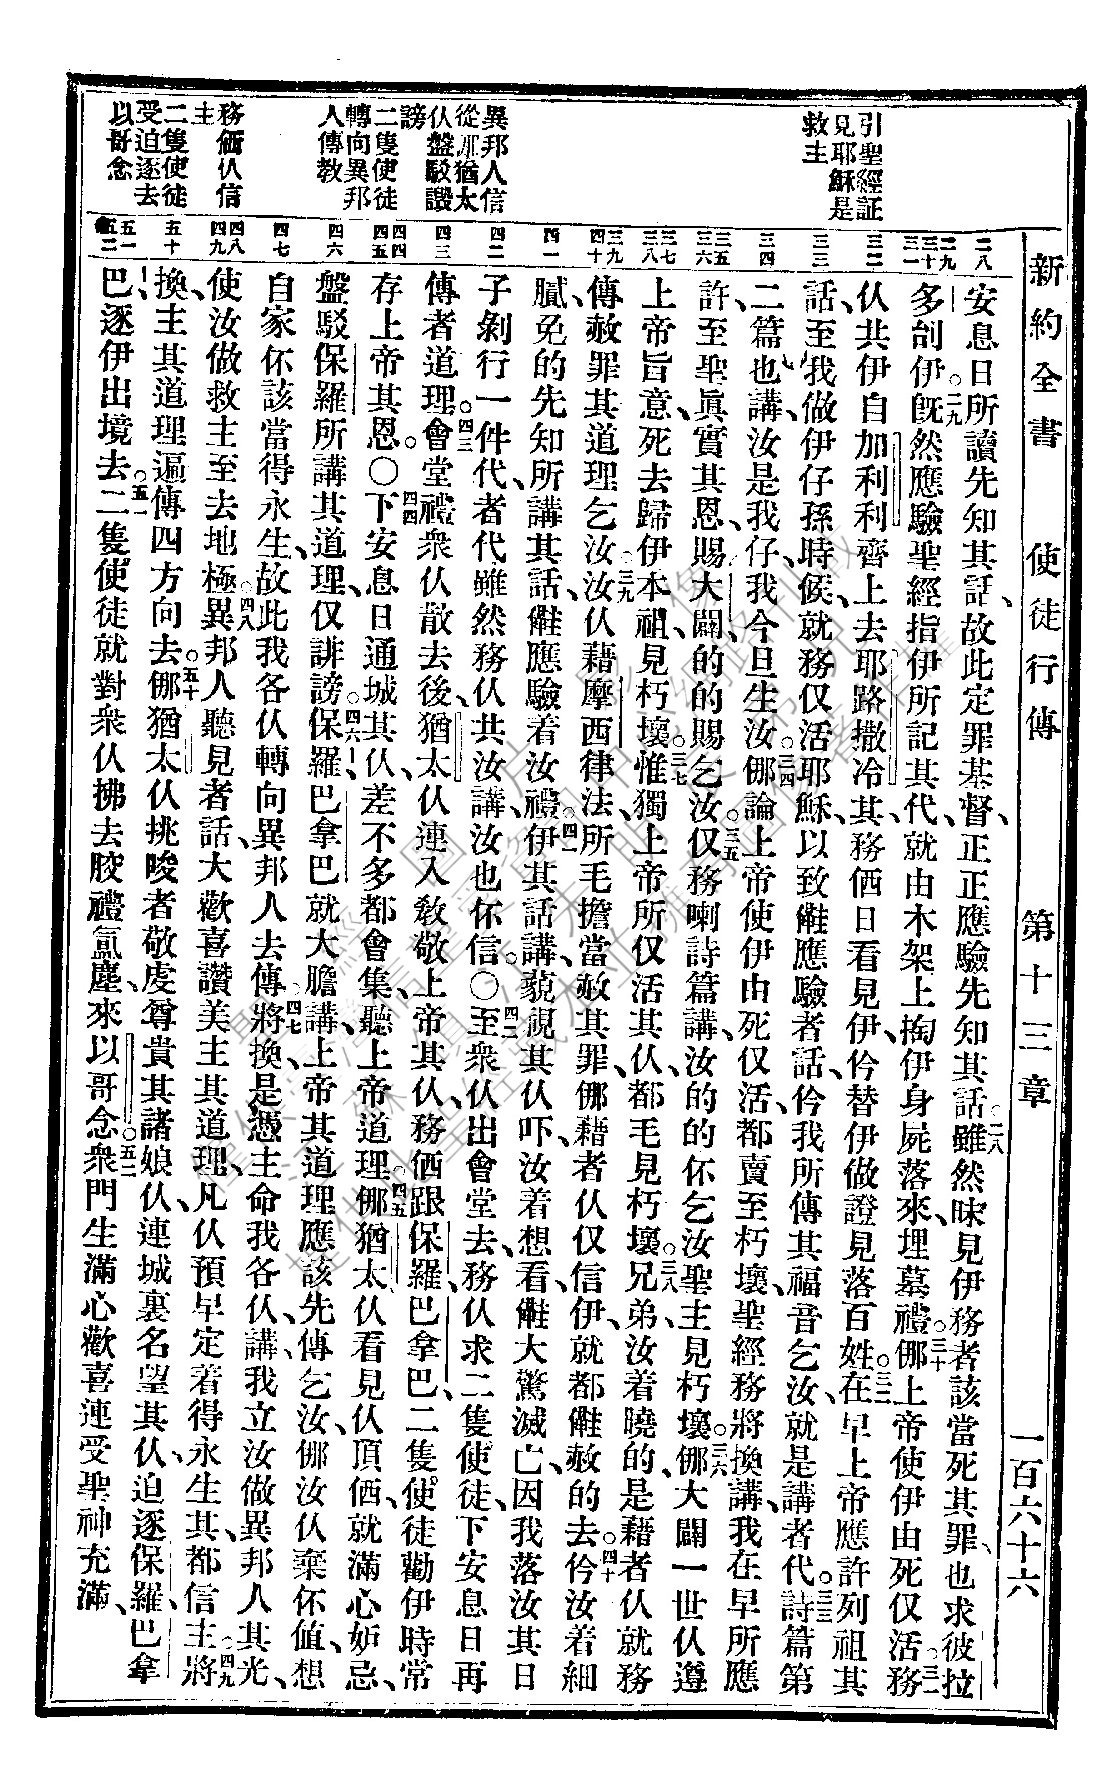 新約全書　使徒行傳　第十三章　一百六十六
引聖經証
見耶穌是
救主
異邦人信
從那猶太
仈盤駁譭
謗
二隻使徒
轉向異邦
人傳教
務価仈信
主
二隻使徒
受迫逐去
以哥念
二八
二九
三十
三一
三二
三三
三四
三五
三六
三七
三八
三九
四十
四一
四二
四三
四四
四五
四六
四七
四八
四九
五十
五一
五二
安息日所讀先知其話、故此定罪基督、正正應驗先知其話。二八雖然昧見伊務者該當死其罪、也求彼拉
多刣伊。二九旣然應驗聖經指伊所記其代、就由木架上掏伊身屍落來、埋墓禮。三十那上帝使伊由死仅活。三一務
仈共伊自加利利齊上去耶路撒冷其、務価日看見伊、伶替伊做證見落百姓。三二在早上帝應許列祖其
話、至我做伊仔孫時候、就務仅活耶穌、以致儺應驗者話、伶我所傳其福音乞汝、就是講者代。三三詩篇第
二篇也講、汝是我仔、我今旦生汝。三四那論上帝使伊由死仅活、都賣至朽壞、聖經務將換講、我在早所應
許至聖眞實其恩、賜大闢的的賜乞汝。三五仅務喇詩篇講、汝的的伓乞汝聖主見朽壞。三六那大闢一世仈遵
上帝旨意、死去歸伊本祖、見朽壞。三七惟獨上帝所仅活其仈、都毛見朽壞。三八兄弟汝着曉的、是藉者仈就務
傳赦罪其道理乞汝。三九汝仈藉摩西律法、所毛擔當赦其罪、那藉者仈仅信伊、就都儺赦的去。四十伶汝着細
膩、免的先知所講其話、儺應驗着汝禮。四一伊其話講、藐視其仈吓、汝着想看、儺大驚滅亡、因我落汝其日
子剝行一件代、者代雖然務仈共汝講、汝也伓信。○四二至衆仈出會堂去、務仈求二隻使徒、下安息日再
傳者道理。四三會堂禮衆仈散去後、猶太仈連入敎敬上帝其仈、務価跟保羅巴拿巴、二隻使徒勸伊時常
存上帝其恩。○四四下安息日、通城其仈、差不多都會集、聽上帝道理。四五那猶太仈看見仈頂価、就滿心妒忌、
盤駁保羅所講其道理、仅誹謗。四六保羅巴拿巴就大膽講、上帝其道理、應該先傳乞汝、那汝仈棄伓値、想
自家伓該當得永生、故此我各仈轉向異邦人去傳。四七將換、是憑主命我各仈、講、我立汝做異邦人其光、
使汝做救主至去地極。四八異邦人聽見者話、大歡喜讚美主其道理、凡仈預早定着得永生其、都信主。四九將
換、主其道理遍傳四方向去。五十那猶太仈挑唆者敬虔尊貴其諸娘仈、連城裏名望其仈、迫逐保羅巴拿
巴、逐伊出境去。五一二隻使徒就對衆仈拂去骹禮氳塵、來以哥念。五二衆門生滿心歡喜、連受聖神充滿、